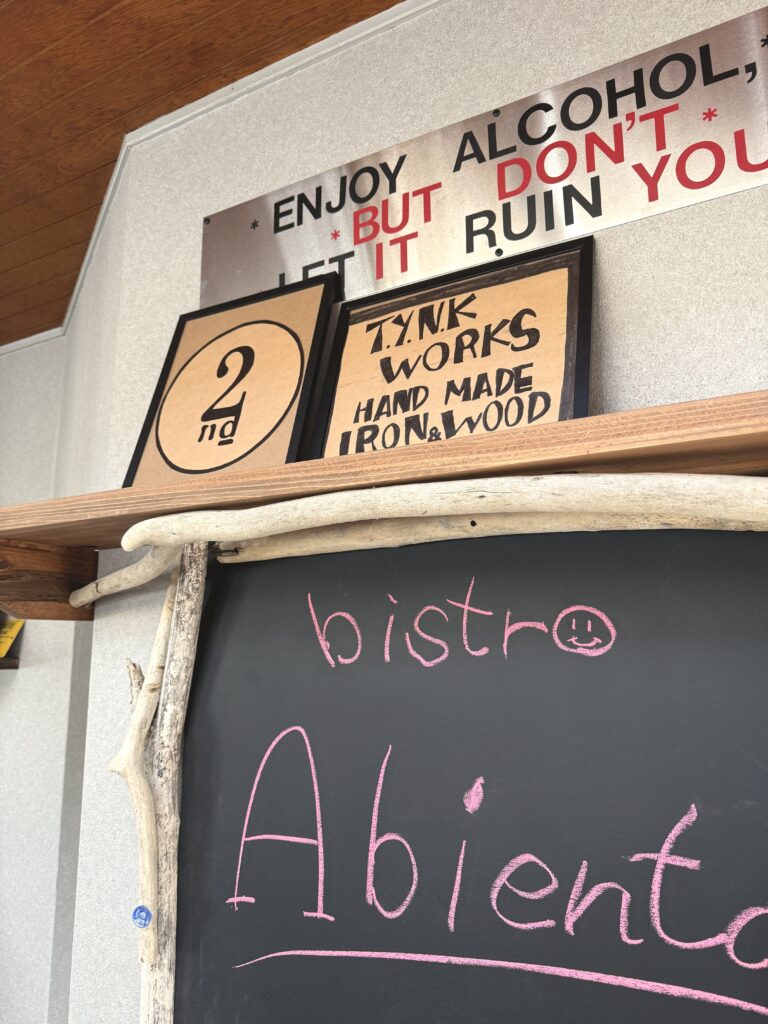 * ENJOY ALCOHOL, *
* BUT DON'T *
LET IT RUIN YOU
2
nd
T.Y.N.K
WORKS
HAND MADE
IRON & WOOD
bistro
Abient